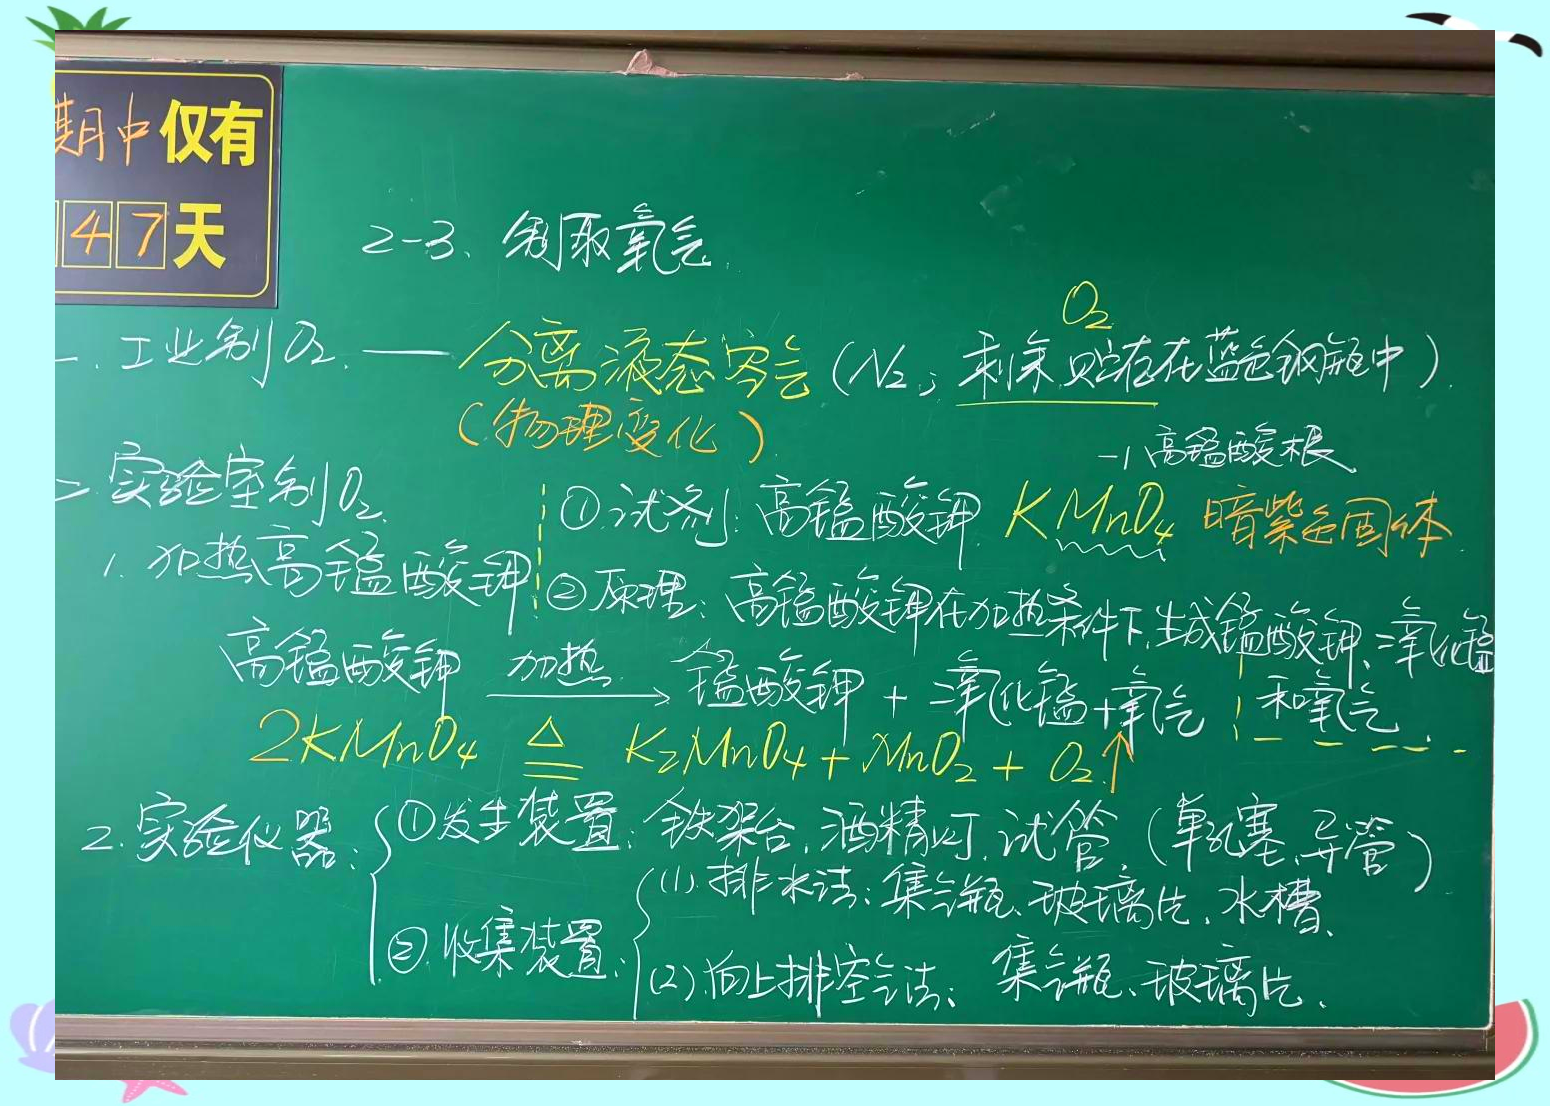 期中仅有
47天
2-3、制取氧气.
O₂
一.工业制O₂.——分离液态空气(N₂;剩余贮存在蓝色钢瓶中).
(物理变化)
-1 高锰酸根
二.实验室制O₂.
①试剂:高锰酸钾 KMnO₄ 暗紫色固体.
1.加热高锰酸钾
②原理:高锰酸钾在加热条件下,生成锰酸钾、二氧化锰
和氧气
高锰酸钾 加热→ 锰酸钾+二氧化锰+氧气
2KMnO₄ ≜ K₂MnO₄+MnO₂+O₂↑
2.实验仪器:
①发生装置:铁架台,酒精灯,试管.(单孔塞,导管)
②收集装置:
(1)排水法:集气瓶、玻璃片,水槽.
(2)向上排空气法:集气瓶、玻璃片.